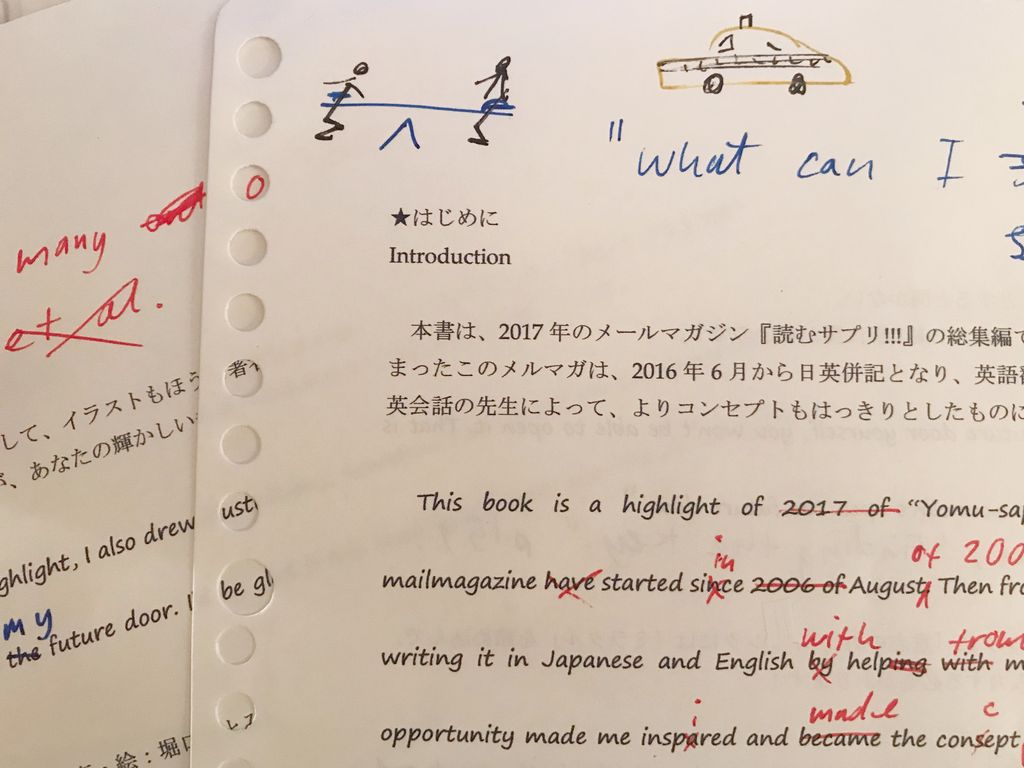 many
et al.
して、イラストもほう
、あなたの輝かしい
ghlight, I also drew
my
the future door. I
絵：堀口
"what can I
★はじめに
Introduction
本書は、2017 年のメールマガジン『読むサプリ!!!』の総集編で
まったこのメルマガは、2016 年 6 月から日英併記となり、英語
英会話の先生によって、よりコンセプトもはっきりとしたものに
This book is a highlight of 2017 of “Yomu-sap
in of 200
mailmagazine have started since 2006 of August. Then fro
with from
writing it in Japanese and English by helping with m
i made c
opportunity made me inspared and became the consept
者
ust
be gl
レ